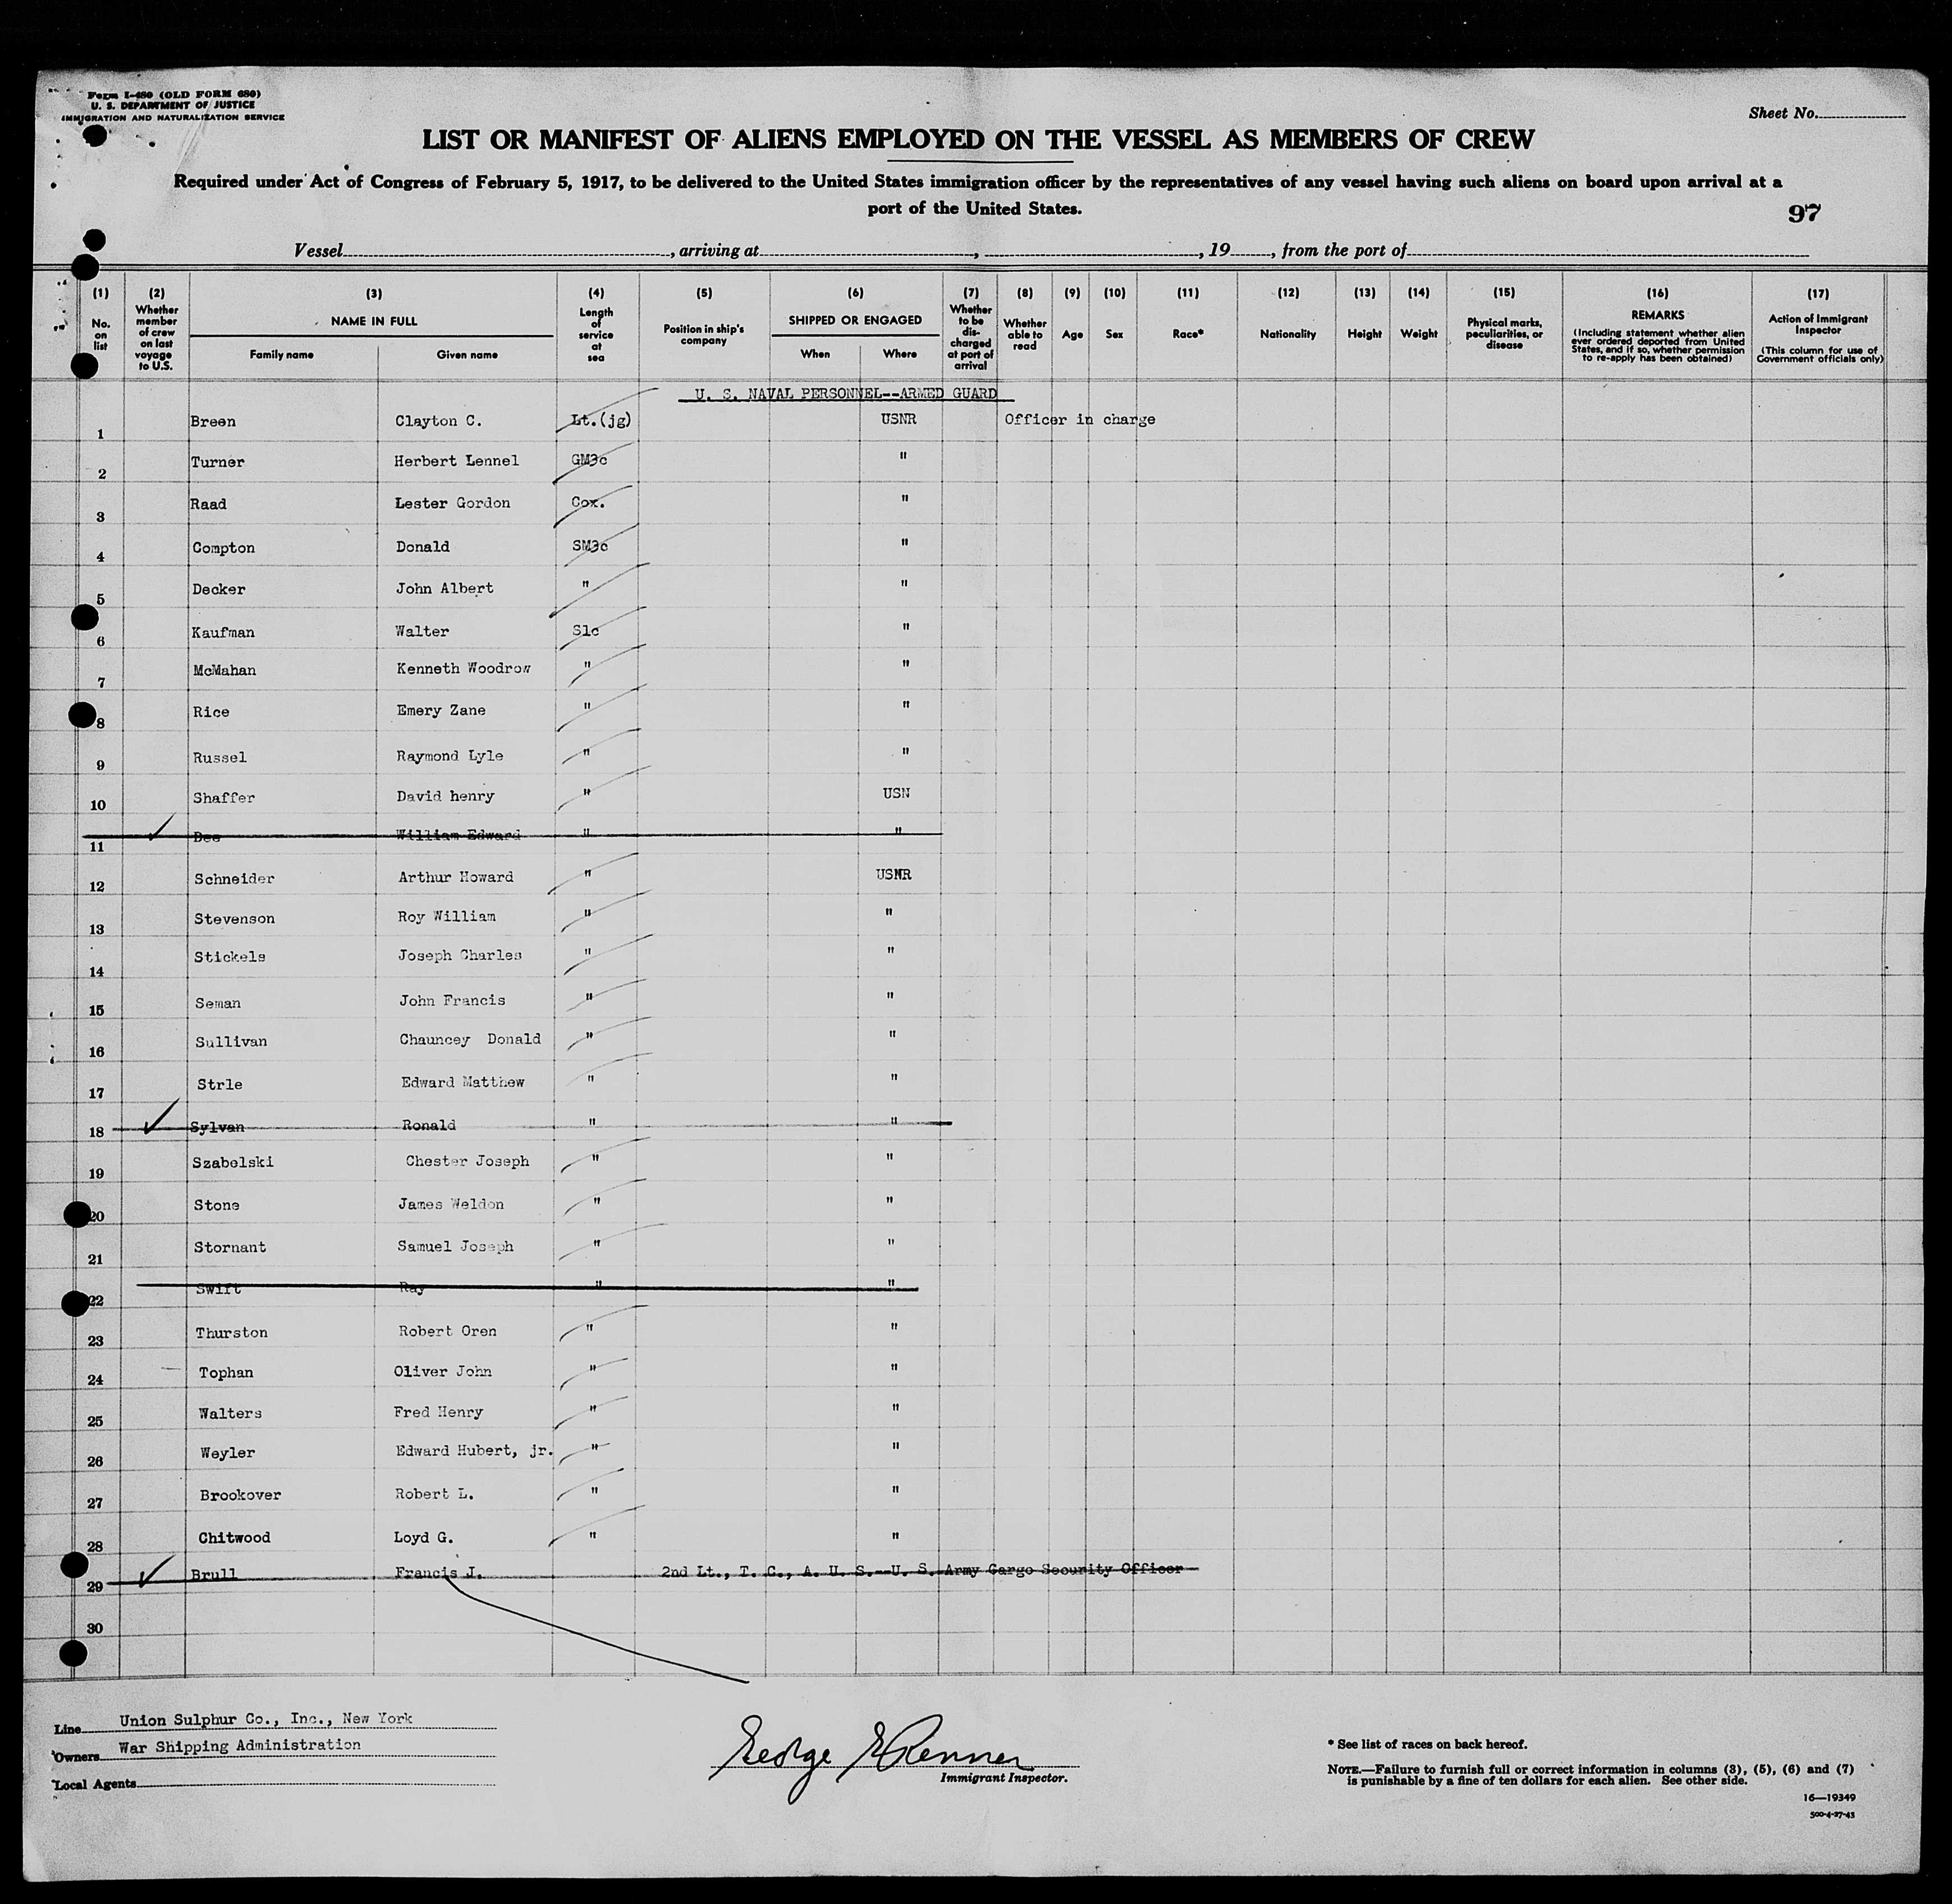 Form I-480 (OLD FORM 680)
U. S. DEPARTMENT OF JUSTICE
IMMIGRATION AND NATURALIZATION SERVICE
Sheet No.
LIST OR MANIFEST OF ALIENS EMPLOYED ON THE VESSEL AS MEMBERS OF CREW
Required under Act of Congress of February 5, 1917, to be delivered to the United States immigration officer by the representatives of any vessel having such aliens on board upon arrival at a
port of the United States.
97
Vessel , arriving at , , 19 , from the port of
(1) No. on list
(2) Whether member of crew on last voyage to U.S.
(3) NAME IN FULL Family name Given name
(4) Length of service at sea
(5) Position in ship's company
(6) SHIPPED OR ENGAGED When Where
(7) Whether to be discharged at port of arrival
(8) Whether able to read
(9) Age
(10) Sex
(11) Race*
(12) Nationality
(13) Height
(14) Weight
(15) Physical marks, peculiarities, or disease
(16) REMARKS (Including statement whether alien ever ordered deported from United States, and if so, whether permission to re-apply has been obtained)
(17) Action of Immigrant Inspector (This column for use of Government officials only)
U. S. NAVAL PERSONNEL--ARMED GUARD
1 Breen Clayton C. Lt.(jg) USNR Officer in charge
2 Turner Herbert Lennel GM3c "
3 Raad Lester Gordon Cox. "
4 Compton Donald SM3c "
5 Decker John Albert " "
6 Kaufman Walter S1c "
7 McMahan Kenneth Woodrow " "
8 Rice Emery Zane " "
9 Russel Raymond Lyle " "
10 Shaffer David henry " USN
11 Dee William Edward " "
12 Schneider Arthur Howard " USNR
13 Stevenson Roy William " "
14 Stickels Joseph Charles " "
15 Seman John Francis " "
16 Sullivan Chauncey Donald " "
17 Strle Edward Matthew " "
18 Sylvan Ronald " "
19 Szabelski Chester Joseph " "
20 Stone James Weldon " "
21 Stornant Samuel Joseph " "
22 Swift Ray " "
23 Thurston Robert Oren " "
24 Tophan Oliver John " "
25 Walters Fred Henry " "
26 Weyler Edward Hubert, jr. " "
27 Brookover Robert L. " "
28 Chitwood Loyd G. " "
29 Brull Francis J. 2nd Lt., T. C., A. U. S.--U. S. Army Cargo Security Officer
30
Line Union Sulphur Co., Inc., New York
Owners War Shipping Administration
Local Agents
George E Renner
Immigrant Inspector.
* See list of races on back hereof.
NOTE.—Failure to furnish full or correct information in columns (3), (5), (6) and (7)
is punishable by a fine of ten dollars for each alien. See other side.
16—19349
500-4-27-43